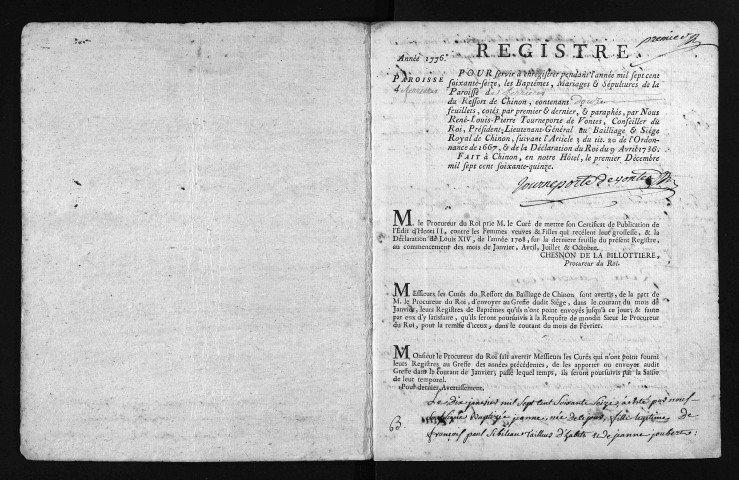 premier
Année 1776.
REGISTRE
PAROISSE
POUR servir à enregistrer pendant l'année mil sept cent
soixante-seize, les Baptêmes, Mariages & Sépultures de la
Paroisse de
du Ressort de Chinon, contenant douze
feuillets, cotés par premier & dernier, & paraphés, par Nous
René-Louis-Pierre Tourneporte de Vontes, Conseiller du
Roi, Président-Lieutenant-Général au Bailliage & Siége
Royal de Chinon, suivant l'Article 3 du tit. 20 de l'Ordon-
nance de 1667, & de la Déclaration du Roi du 9 Avril 1736.
FAIT à Chinon, en notre Hôtel, le premier Décembre
mil sept cent soixante-quinze.
Tourneporte de vontes
M. le Procureur du Roi prie M. le Curé de mettre son Certificat de Publication de
l'Edit d'Henri II, contre les Femmes veuves & Filles qui recélent leur grossesse, & la
Déclaration de Louis XIV, de l'année 1708, sur la derniere feuille du présent Registre,
au commencement des mois de Janvier, Avril, Juillet & Octobre.
CHESNON DE LA BILLOTTIERE,
Procureur du Roi.
MEssieurs les Curés du Ressort du Bailliage de Chinon sont avertis, de la part de
M. le Procureur du Roi, d'envoyer au Greffe dudit Siége, dans le courant du mois de
Janvier, leurs Registres de Baptêmes qu'ils n'ont point envoyés jusqu'à ce jour; & faute
par eux d'y satisfaire, qu'ils seront poursuivis à la Requête de mondit Sieur le Procureur
du Roi, pour la remise d'iceux, dans le courant du mois de Février.
MOnsieur le Procureur du Roi fait avertir Messieurs les Curés qui n'ont point fourni
leurs Registres au Greffe des années précédentes, de les apporter ou envoyer audit
Greffe dans le courant de Janvier; passé lequel temps, ils seront poursuivis par la Saisie
de leur temporel.
Pour dernier Avertissement.
Le dix janvier mil sept cent soixante seize, a été par nous
baptisée jeanne, née de fille legitime de
françois paul et de jeanne joubert